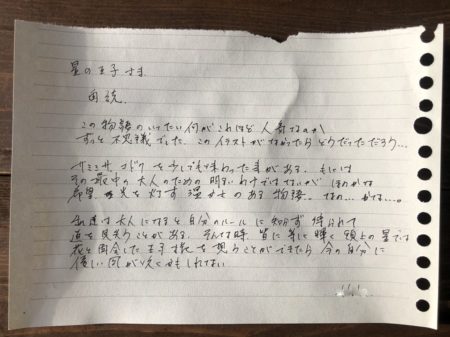 星の王子さま
この物語のいったい何がこれほど人気なのか
ずっと不思議だった。このイラストがなかったらどうだっただろう…
サミシサ、コドクを少しでも味わった事がある、
その最中の大人のための明るい ではないが ほのかな
希望の光を灯す温かさのある物語。
私達は大人になると自分のルールに知らず 縛られて
道を見失うことがある。そんな時、皆に等しく輝く頭上の星で
王子様を思うことができたら今の自分に
優しい風が吹くかもしれない